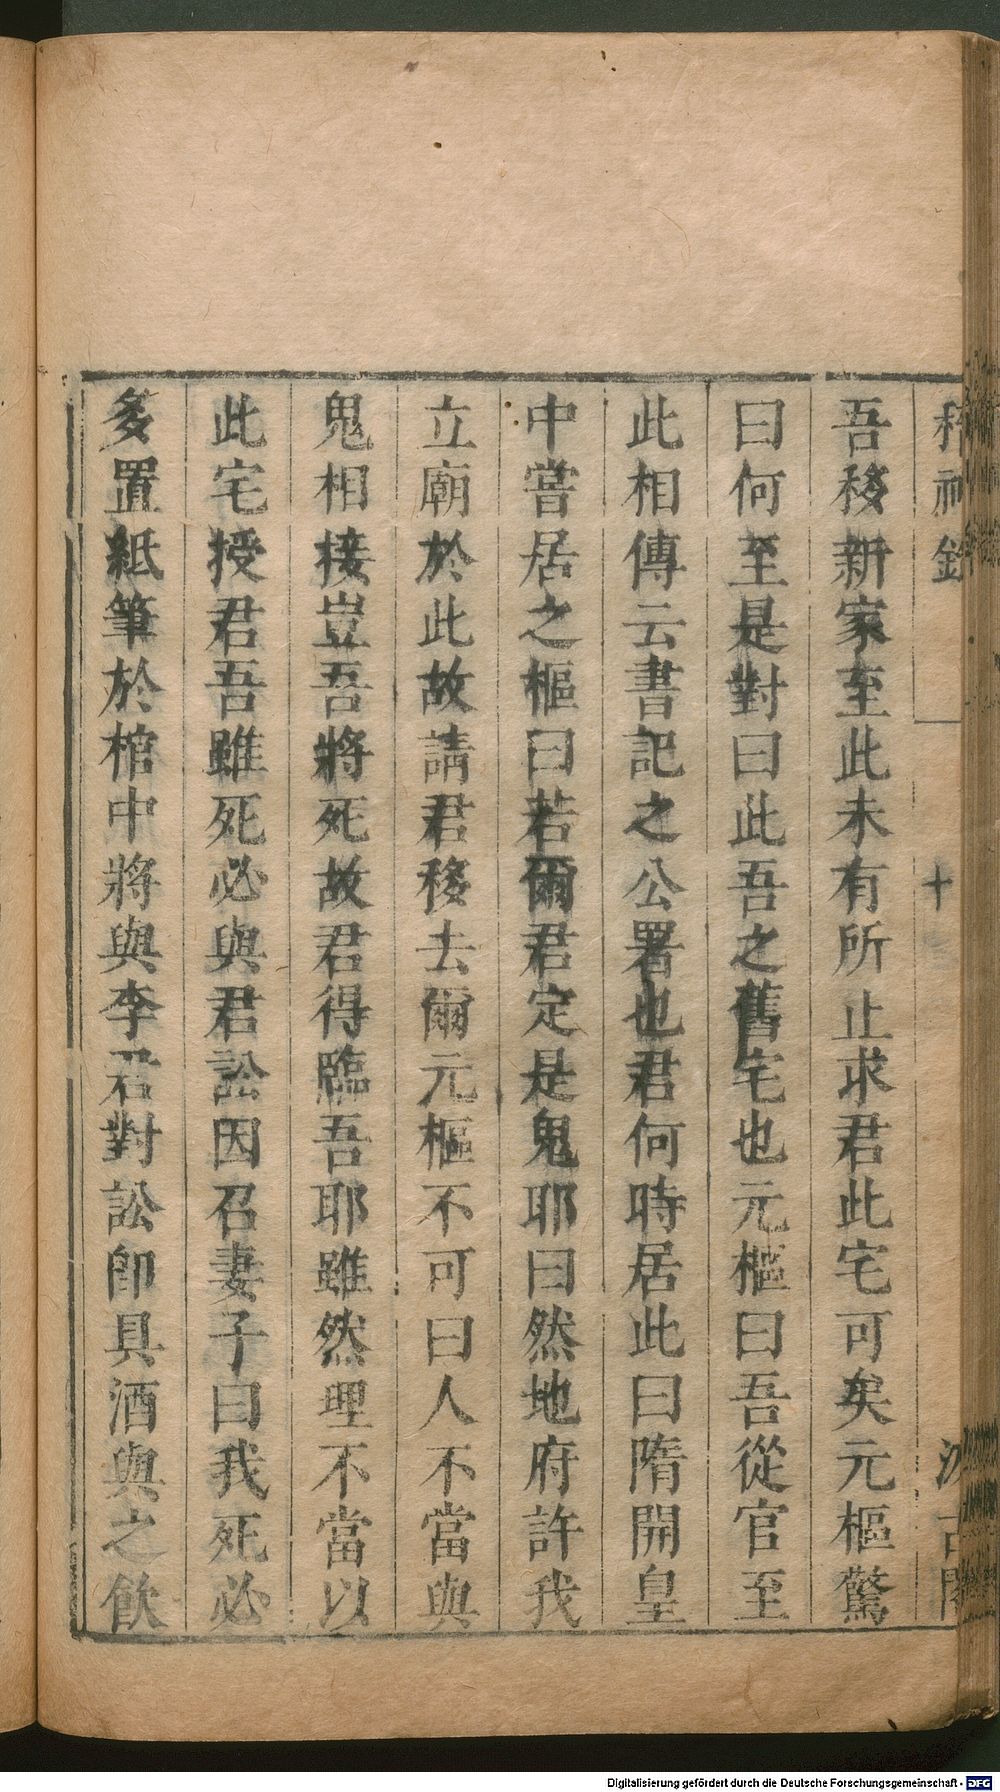 稽神錄 十 汲古閣
吾移新家至此未有所止求君此宅可矣元樞驚
曰何至是對曰此吾之舊宅也元樞曰吾從官至
此相傳云書記之公署也君何時居此曰隋開皇
中嘗居之樞曰若爾君定是鬼耶曰然地府許我
立廟於此故請君移去爾元樞不可曰人不當與
鬼相接豈吾將死故君得臨吾耶雖然理不當以
此宅授君吾雖死必與君訟因召妻子曰我死必
多置紙筆於棺中將與李君對訟卽具酒與之飲
Digitalisierung gefördert durch die Deutsche Forschungsgemeinschaft - DFG